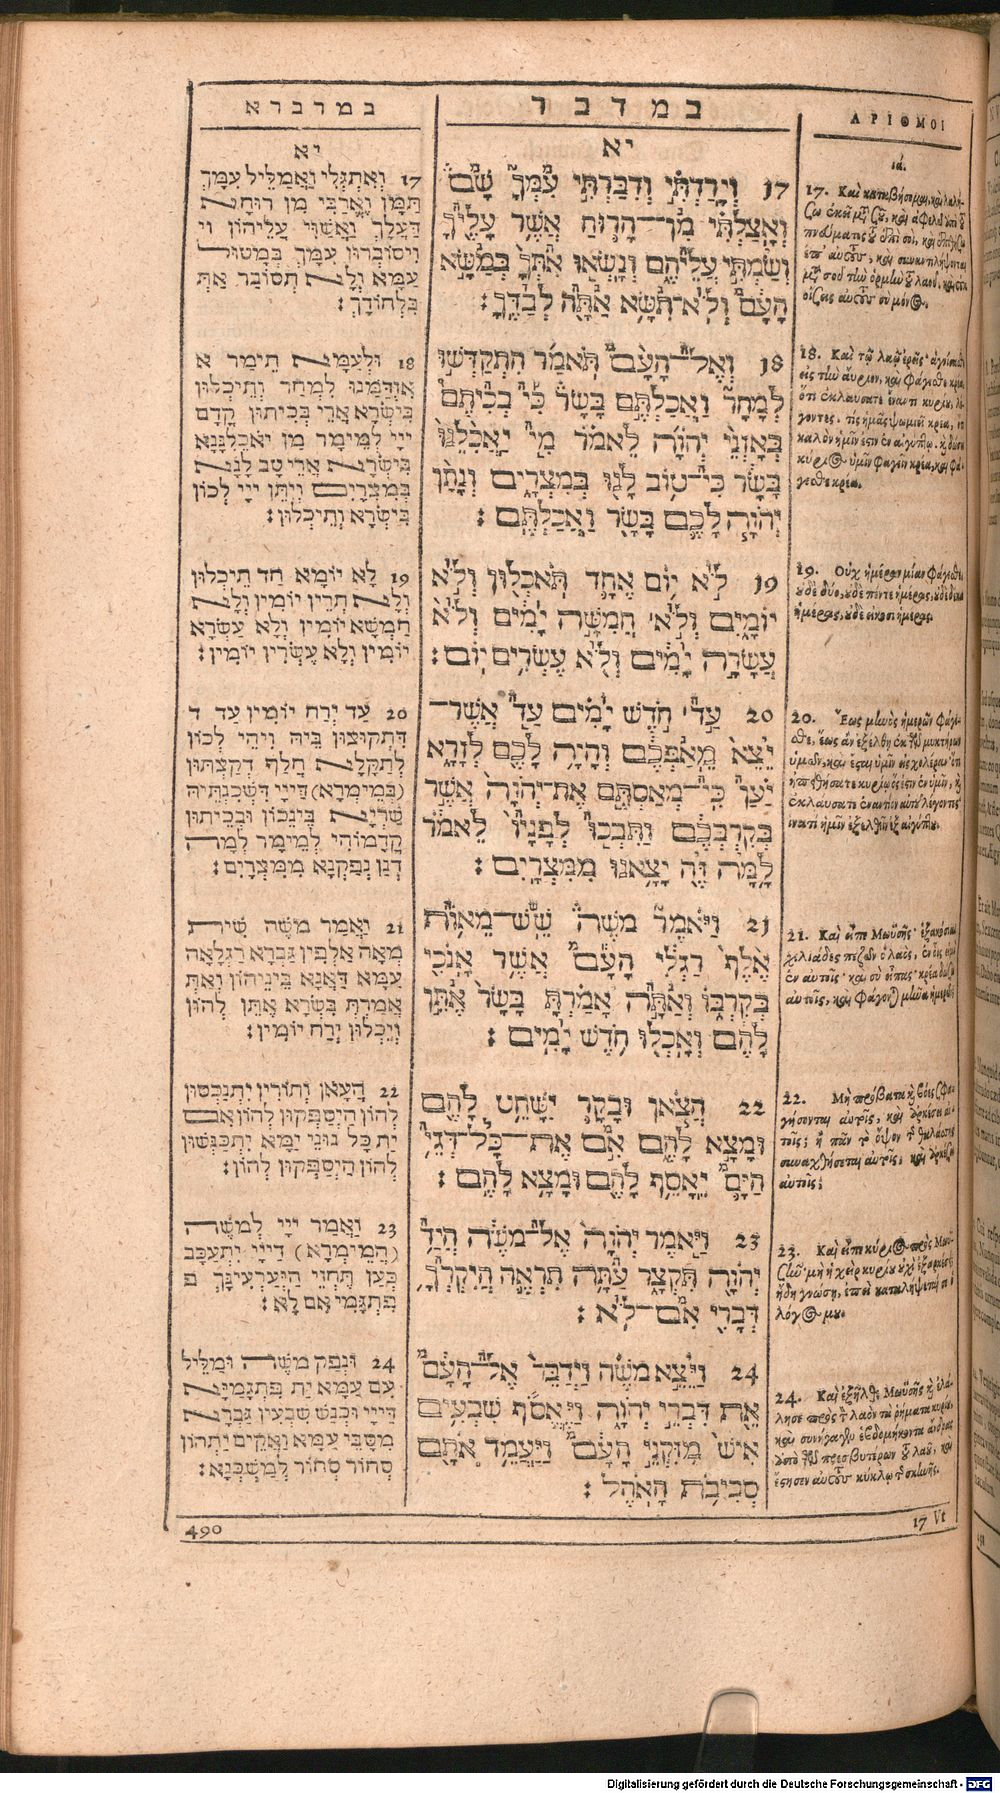 במדברא
יא
17 וְאֶתְגְּלִי וַאֲמַלֵּיל עִמָּךְ
תַּמָּן וֶאֱרַבֵּי מִן רוּחָא
דַּעֲלָךְ וַאֲשַׁוִּי עֲלֵיהוֹן וי
וִיסוֹבְרוּן עִמָּךְ בְּמַטּוּל
עַמָּא וְלָא תְסוֹבַר אַתְּ
בִּלְחוֹדָךְ׃
18 וּלְעַמָּא תֵימַר א
אִזְדַּמְּנוּ לִמְחַר וְתֵיכְלוּן
בִּישְׂרָא אֲרֵי בְּכִיתוּן קֳדָם
יְיָי לְמֵימָר מַן יֹאכְלִנָּנָא
בִּישְׂרָא אֲרֵי טַב לָנָא
בְּמִצְרָיִם וְיִתֵּן יְיָי לְכוֹן
בִּישְׂרָא וְתֵיכְלוּן׃
19 לָא יוֹמָא חַד תֵּיכְלוּן
וְלָא תְרֵין יוֹמִין וְלָא
חַמְשָׁא יוֹמִין וְלָא עַשְׂרָא
יוֹמִין וְלָא עֶשְׂרִין יוֹמִין׃
20 עַד יְרַח יוֹמִין עַד ד
דִּתְקוּצוּן בֵּיהּ וִיהֵי לְכוֹן
לְתַקְלָא חֲלַף דְּקַצְתּוּן
(בְּמֵימְרָא) דַּיְיָי דִּשְׁכִנְתֵּיהּ
שַׁרְיָא בֵּינֵכוֹן וּבְכֵיתוּן
קֳדָמוֹהִי לְמֵימָר לְמָה
דְנַן נְפַקְנָא מִמִּצְרָיִם׃
21 וַאֲמַר מֹשֶׁה שִׁית
מְאָה אַלְפִין גַּבְרָא רִגְלָאָה
עַמָּא דַּאֲנָא בֵּינֵיהוֹן וְאַתְּ
אֲמַרְתְּ בִּשְׂרָא אֶתֵּן לְהוֹן
וְיֵכְלוּן יְרַח יוֹמִין׃
22 הֲעָאן וְתוֹרִין יִתְנַכְסוּן
לְהוֹן הַיְסַפְּקוּן לְהוֹן אִם
יַת כָּל נוּנֵי יַמָּא יִתְכַּנְּשׁוּן
לְהוֹן הַיְסַפְּקוּן לְהוֹן׃
23 וַאֲמַר יְיָי לְמֹשֶׁה
(הֲמֵימְרָא) דַיְיָי יִתְעַכָּב
כְּעַן תֶּחֱזֵי הַיְעַרְעִינָךְ פ
פִּתְגָמִי אִם לָא׃
24 וּנְפַק מֹשֶׁה וּמַלֵּיל
עִם עַמָּא יַת פִּתְגָמַיָּא
דַּיְיָי וּכְנַשׁ שִׁבְעִין גַּבְרָא
מִסָּבֵי עַמָּא וַאֲקֵים יַתְהוֹן
סְחוֹר סְחוֹר לְמַשְׁכְּנָא׃
490
במדבר
יא
17 וְיָרַדְתִּי וְדִבַּרְתִּי עִמְּךָ שָׁם
וְאָצַלְתִּי מִן־הָרוּחַ אֲשֶׁר עָלֶיךָ
וְשַׂמְתִּי עֲלֵיהֶם וְנָשְׂאוּ אִתְּךָ בְּמַשָּׂא
הָעָם וְלֹא־תִשָּׂא אַתָּה לְבַדֶּךָ׃
18 וְאֶל־הָעָם תֹּאמַר הִתְקַדְּשׁוּ
לְמָחָר וַאֲכַלְתֶּם בָּשָׂר כִּי בְּכִיתֶם
בְּאָזְנֵי יְהוָה לֵאמֹר מִי יַאֲכִלֵנוּ
בָּשָׂר כִּי־טוֹב לָנוּ בְּמִצְרָיִם וְנָתַן
יְהוָה לָכֶם בָּשָׂר וַאֲכַלְתֶּם׃
19 לֹא יוֹם אֶחָד תֹּאכְלוּן וְלֹא
יוֹמָיִם וְלֹא חֲמִשָּׁה יָמִים וְלֹא
עֲשָׂרָה יָמִים וְלֹא עֶשְׂרִים יוֹם׃
20 עַד חֹדֶשׁ יָמִים עַד אֲשֶׁר־
יֵצֵא מֵאַפְּכֶם וְהָיָה לָכֶם לְזָרָא
יַעַן כִּי־מְאַסְתֶּם אֶת־יְהוָה אֲשֶׁר
בְּקִרְבְּכֶם וַתִּבְכּוּ לְפָנָיו לֵאמֹר
לָמָּה זֶּה יָצָאנוּ מִמִּצְרָיִם׃
21 וַיֹּאמֶר מֹשֶׁה שֵׁשׁ־מֵאוֹת
אֶלֶף רַגְלִי הָעָם אֲשֶׁר אָנֹכִי
בְּקִרְבּוֹ וְאַתָּה אָמַרְתָּ בָּשָׂר אֶתֵּן
לָהֶם וְאָכְלוּ חֹדֶשׁ יָמִים׃
22 הֲצֹאן וּבָקָר יִשָּׁחֵט לָהֶם
וּמָצָא לָהֶם אִם אֶת־כָּל־דְּגֵי
הַיָּם יֵאָסֵף לָהֶם וּמָצָא לָהֶם׃
23 וַיֹּאמֶר יְהוָה אֶל־מֹשֶׁה הֲיַד
יְהוָה תִּקְצָר עַתָּה תִרְאֶה הֲיִקְרְךָ
דְבָרִי אִם־לֹא׃
24 וַיֵּצֵא מֹשֶׁה וַיְדַבֵּר אֶל־הָעָם
אֵת דִּבְרֵי יְהוָה וַיֶּאֱסֹף שִׁבְעִים
אִישׁ מִזִּקְנֵי הָעָם וַיַּעֲמֵד אֹתָם
סְבִיבֹת הָאֹהֶל׃
ΑΡΙΘΜΟΙ
ια.
17. Καὶ καταβήσομαι, καὶ λαλή-
σω ἐκεῖ μετὰ σοῦ, καὶ ἀφελῶ ἀπὸ τοῦ
πνεύματος τοῦ ἐπὶ σοί, καὶ ἐπιθήσω
ἐπ' αὐτοὺς, καὶ συναντιλήψονται
μετὰ σοῦ τὴν ὁρμὴν τοῦ λαοῦ, καὶ οὐκ
οἴσεις αὐτοὺς σὺ μόνος.
18. Καὶ τῷ λαῷ ἐρεῖς· ἁγνίσασθε
εἰς τὴν αὔριον, καὶ φάγεσθε κρέα,
ὅτι ἐκλαύσατε ἔναντι κυρίου, λέ-
γοντες. τίς ἡμᾶς ψωμιεῖ κρέα, ὅτι
καλὸν ἡμῖν ἐστιν ἐν αἰγύπτῳ. καὶ δώσει
κύριος ὑμῖν φαγεῖν κρέα, καὶ φά-
γεσθε κρέα.
19. Οὐχ ἡμέραν μίαν φάγεσθε,
οὐδὲ δύο, οὐδὲ πέντε ἡμέρας, οὐδὲ δέκα
ἡμέρας, οὐδὲ εἴκοσι ἡμέρας.
20. Ἕως μηνὸς ἡμερῶν φάγε-
σθε, ἕως ἂν ἐξέλθῃ ἐκ τῶν μυκτήρων
ὑμῶν, καὶ ἔσται ὑμῖν εἰς χολέραν· ὅτι
ἠπειθήσατε κυρίῳ ὅς ἐστιν ἐν ὑμῖν, καὶ
ἐκλαύσατε ἐναντίον αὐτοῦ λέγοντες
ἱνατί ἡμῖν ἐξελθεῖν ἐξ αἰγύπτου.
21. Καὶ εἶπε Μωϋσῆς· ἑξακόσιαι
χιλιάδες πεζῶν ὁ λαὸς, ἐν οἷς εἰμι
ἐν αὐτοῖς· καὶ σὺ εἶπας· κρέα δώσω
αὐτοῖς, καὶ φάγονται μῆνα ἡμερῶν
22. Μὴ πρόβατα καὶ βόες σφα-
γήσονται αὐτοῖς, καὶ ἀρκέσει αὐ-
τοῖς; ἢ πᾶν τὸ ὄψον τῆς θαλάσσης
συναχθήσεται αὐτοῖς, καὶ ἀρκέσει
αὐτοῖς;
23. Καὶ εἶπε κύριος πρὸς Μωυ-
σῆν· μὴ ἡ χεὶρ κυρίου οὐχ ἐξαρκέσει;
ἤδη γνώσῃ, εἰ ἐπικαταλήψεταί σε ὁ
λόγος μου.
24. Καὶ ἐξῆλθε Μωϋσῆς καὶ ἐλά-
λησε πρὸς τὸν λαὸν τὰ ῥήματα κυρίου,
καὶ συνήγαγεν ἑβδομήκοντα ἄνδρας
ἀπὸ τῶν πρεσβυτέρων τοῦ λαοῦ, καὶ
ἔστησεν αὐτοὺς κύκλῳ τῆς σκηνῆς.
17 Vt
Digitalisierung gefördert durch die Deutsche Forschungsgemeinschaft - DFG